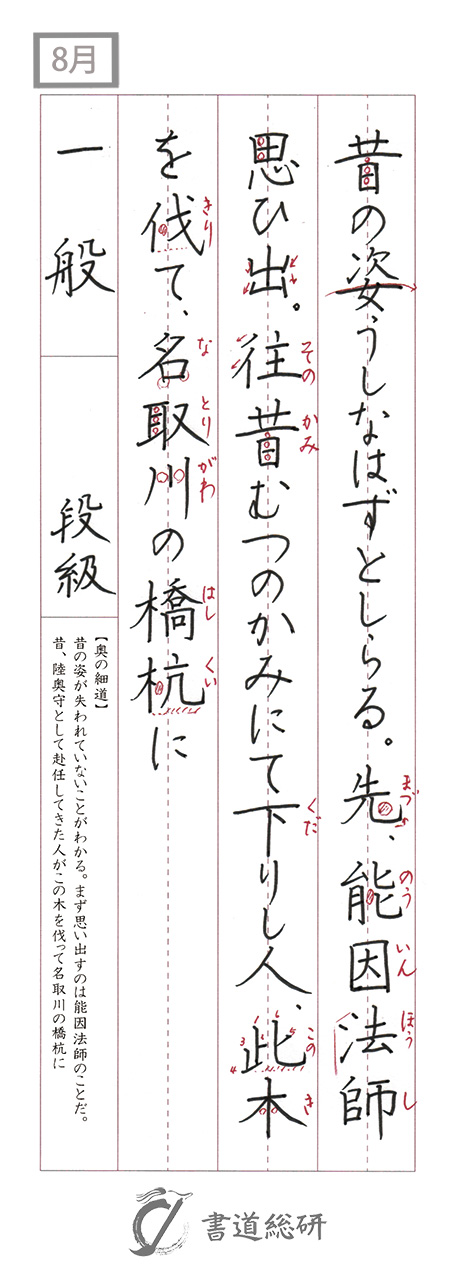 8月
昔の姿うしなはずとしらる。先、能因法師
まづ のう いん ほう し
思ひ出。往昔むつのかみにて下りし人、此木
その かみ くだ この き
を伐て、名取川の橋杭に
きり な とり がわ はし くい
一般 段級
【奥の細道】
昔の姿が失われていないことがわかる。まず思い出すのは能因法師のことだ。
昔、陸奥守として赴任してきた人がこの木を伐って名取川の橋杭に
書道総研